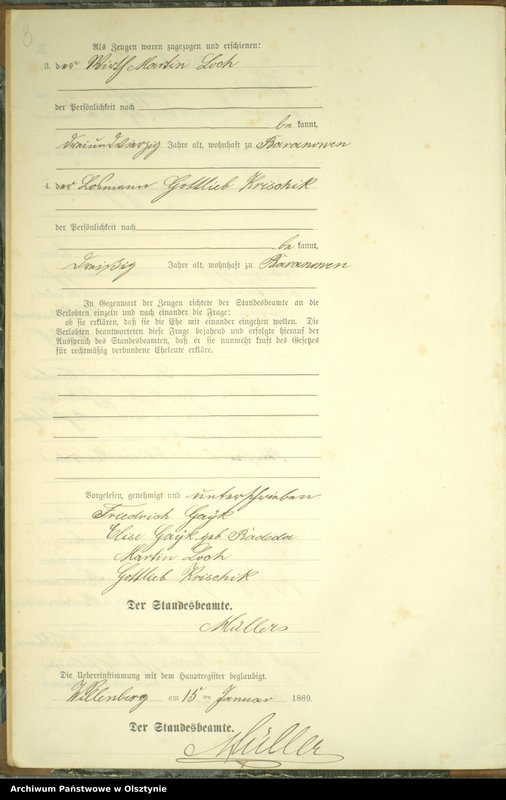 Als Zeugen waren zugezogen und erschienen:
3. der Wirth Martin Loch
der Persönlichkeit nach
be kannt,
dreiundvierzig Jahre alt, wohnhaft zu Baranowen
4. der Losmann Gottlieb Krischik
der Persönlichkeit nach
be kannt,
dreißig Jahre alt, wohnhaft zu Baranowen
In Gegenwart der Zeugen richtete der Standesbeamte an die
Verlobten einzeln und nach einander die Frage:
ob sie erklären, daß sie die Ehe mit einander eingehen wollen. Die
Verlobten beantworteten diese Frage bejahend und erfolgte hierauf der
Ausspruch des Standesbeamten, daß er sie nunmehr kraft des Gesetzes
für rechtmäßig verbundene Eheleute erkläre.
Vorgelesen, genehmigt und unterschrieben
Friedrich Gayk
Elise Gayk geb.
Martin Loch
Gottlieb Krischik
Der Standesbeamte.
Müller
Die Uebereinstimmung mit dem Hauptregister beglaubigt.
Willenberg am 15 ten Januar 1889.
Der Standesbeamte.
Müller
Archiwum Państwowe w Olsztynie